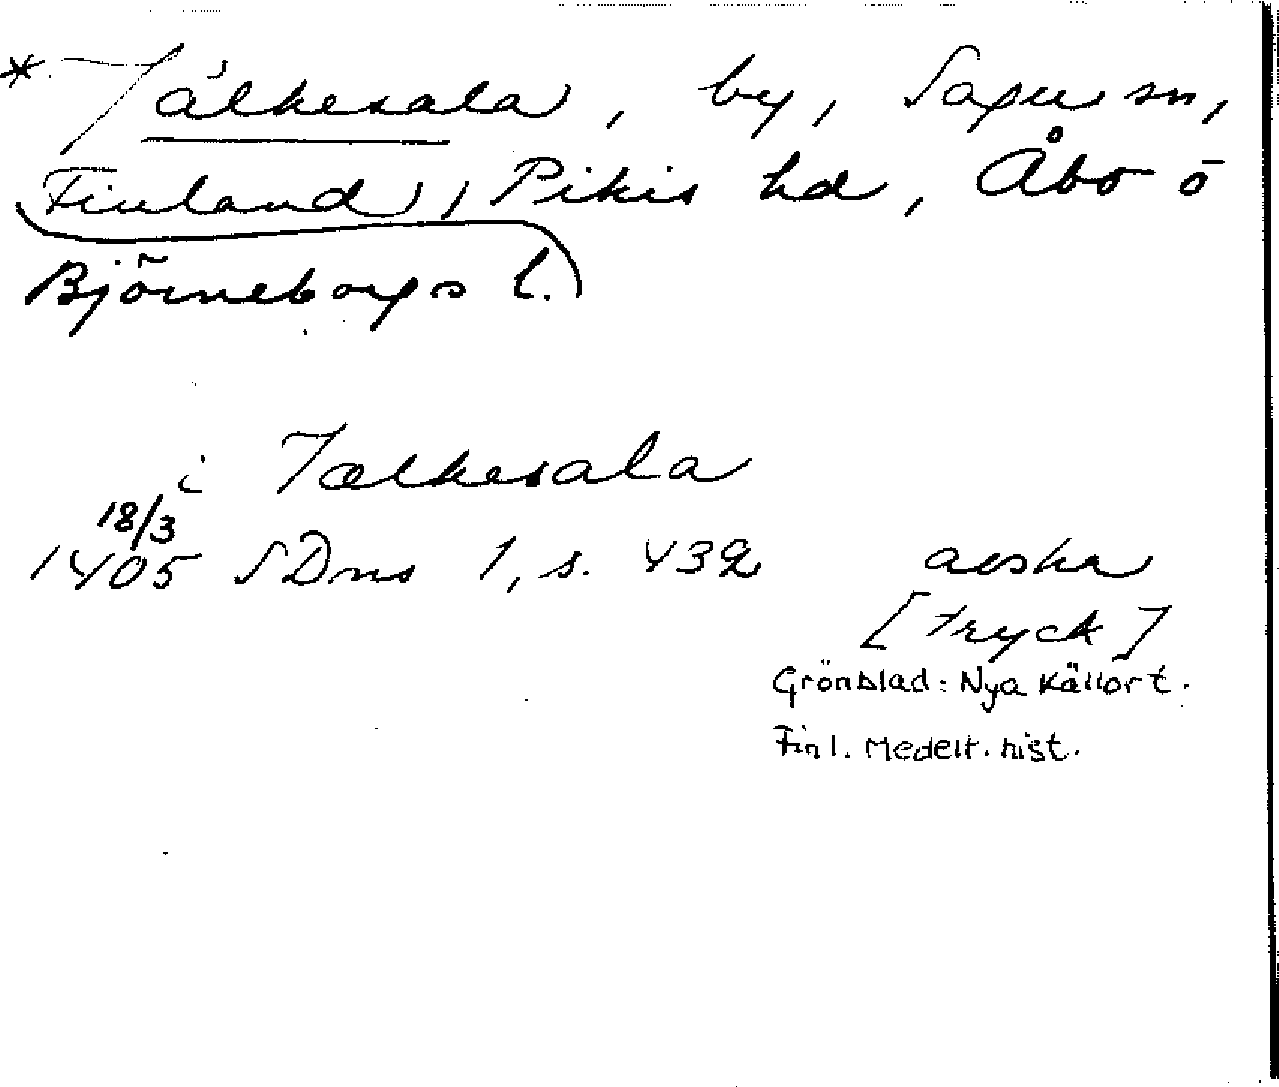 * Tälkesala, by, Sagu sn,
Finland, Pikis hd, Åbo o
Björneborgs l.
i Tælkesala
18/3
1405 SDns 1, s. 432 avskr
[tryck]
Grönblad: Nya Källor t.
Finl. Medelt. hist.